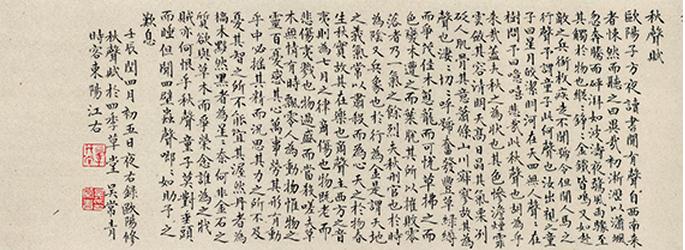 秋聲賦
歐陽子方夜讀書聞有聲自西南來
者悚然而聽之曰異哉初淅瀝以瀟颯
忽奔騰而砰湃如波濤夜驚風雨驟至
其觸於物也鏦鏦錚錚金鐵皆鳴又如赴
敵之兵銜枚疾走不聞號令但聞人馬之
行聲予謂童子此何聲也汝出視之童
子曰星月皎潔明河在天四無人聲聲在
樹間予曰噫嘻悲哉此秋聲也胡為乎
來哉蓋夫秋之為狀也其色慘澹煙霏
雲斂其容清明天高日晶其氣栗冽
砭人肌骨其意蕭條山川寂寥故其為
聲也淒淒切切呼號奮發豐草綠縟
而爭茂佳木蔥蘢而可悅草拂之而
色變木遭之而葉脫其所以摧敗零
落者乃一氣之餘烈夫秋刑官也於時
為陰又兵象也於行為金是謂天地
之義氣常以肅殺而為心天之於物春
生秋實故其在樂也商聲主西方之音
夷則為七月之律商傷也物既老而悲
傷夷戮也物過盛而當殺嗟夫草
木無情有時飄零人為動物惟物之
靈百憂感其心萬事勞其形有動
乎中必搖其精而況思其力之所不及
憂其智之所不能宜其渥然丹者為
槁木黟然黑者為星星奈何非金石之
質欲與草木而爭榮念誰為之戕
賊亦何恨乎秋聲童子莫對垂頭
而睡但聞四壁蟲聲唧唧如助予之
歎息
壬辰閏四月初五日夜右錄歐陽修
秋聲賦於四季草堂 吳常青
時客東陽江右